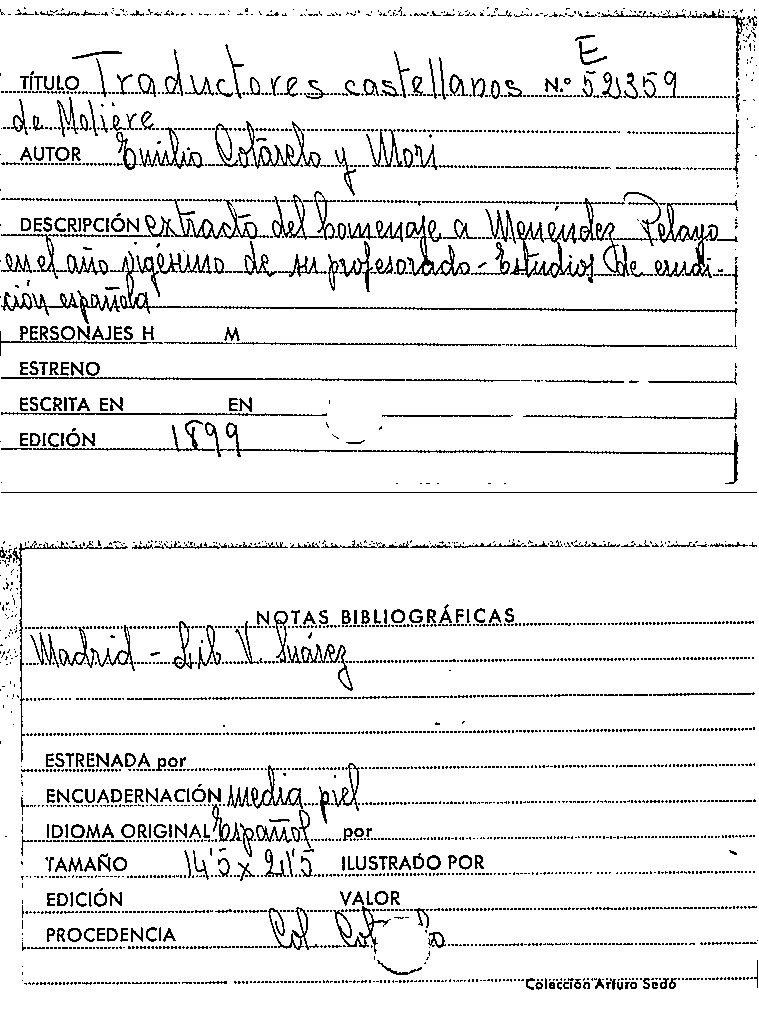 E
TÍTULO Traductores castellanos N.º 52359
de Moliére
AUTOR Emilio Cotarelo y Mori
DESCRIPCIÓN extracto del homenaje a Menéndez Pelayo
en el año vigésimo de su profesorado - Estudios de erudi-
ción española
PERSONAJES H M
ESTRENO
ESCRITA EN EN
EDICIÓN 1899
NOTAS BIBLIOGRÁFICAS
Madrid - Lib V. Suárez
ESTRENADA por
ENCUADERNACIÓN media piel
IDIOMA ORIGINAL Español por
TAMAÑO 14'5 x 21'5 ILUSTRADO POR
EDICIÓN VALOR
PROCEDENCIA Col.
Colección Arturo Sedó